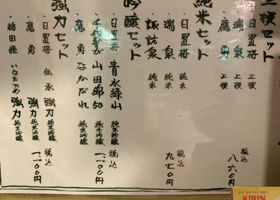 上撰セット
一、日置桜 上撰
一、瑞泉 上撰
一、鷹勇 上撰
税込
八六〇円
純米セット
一、日置桜 純米
一、瑞泉 純米
一、諏訪泉 純米
税込
九七〇円
吟醸セット
一、日置桜 青水緑山 純米吟醸
一、千代むすび 山田錦50 純米吟醸
一、鷹勇 なかだれ 純米吟醸
税込
一、一〇〇円
強力セット
一、日置桜 伝承強力 純米吟醸
一、鷹勇 強力 純米吟醸
一、稲田姫 いなたひめ 強力 純米吟醸
税込
一、二〇〇円
KIRIN